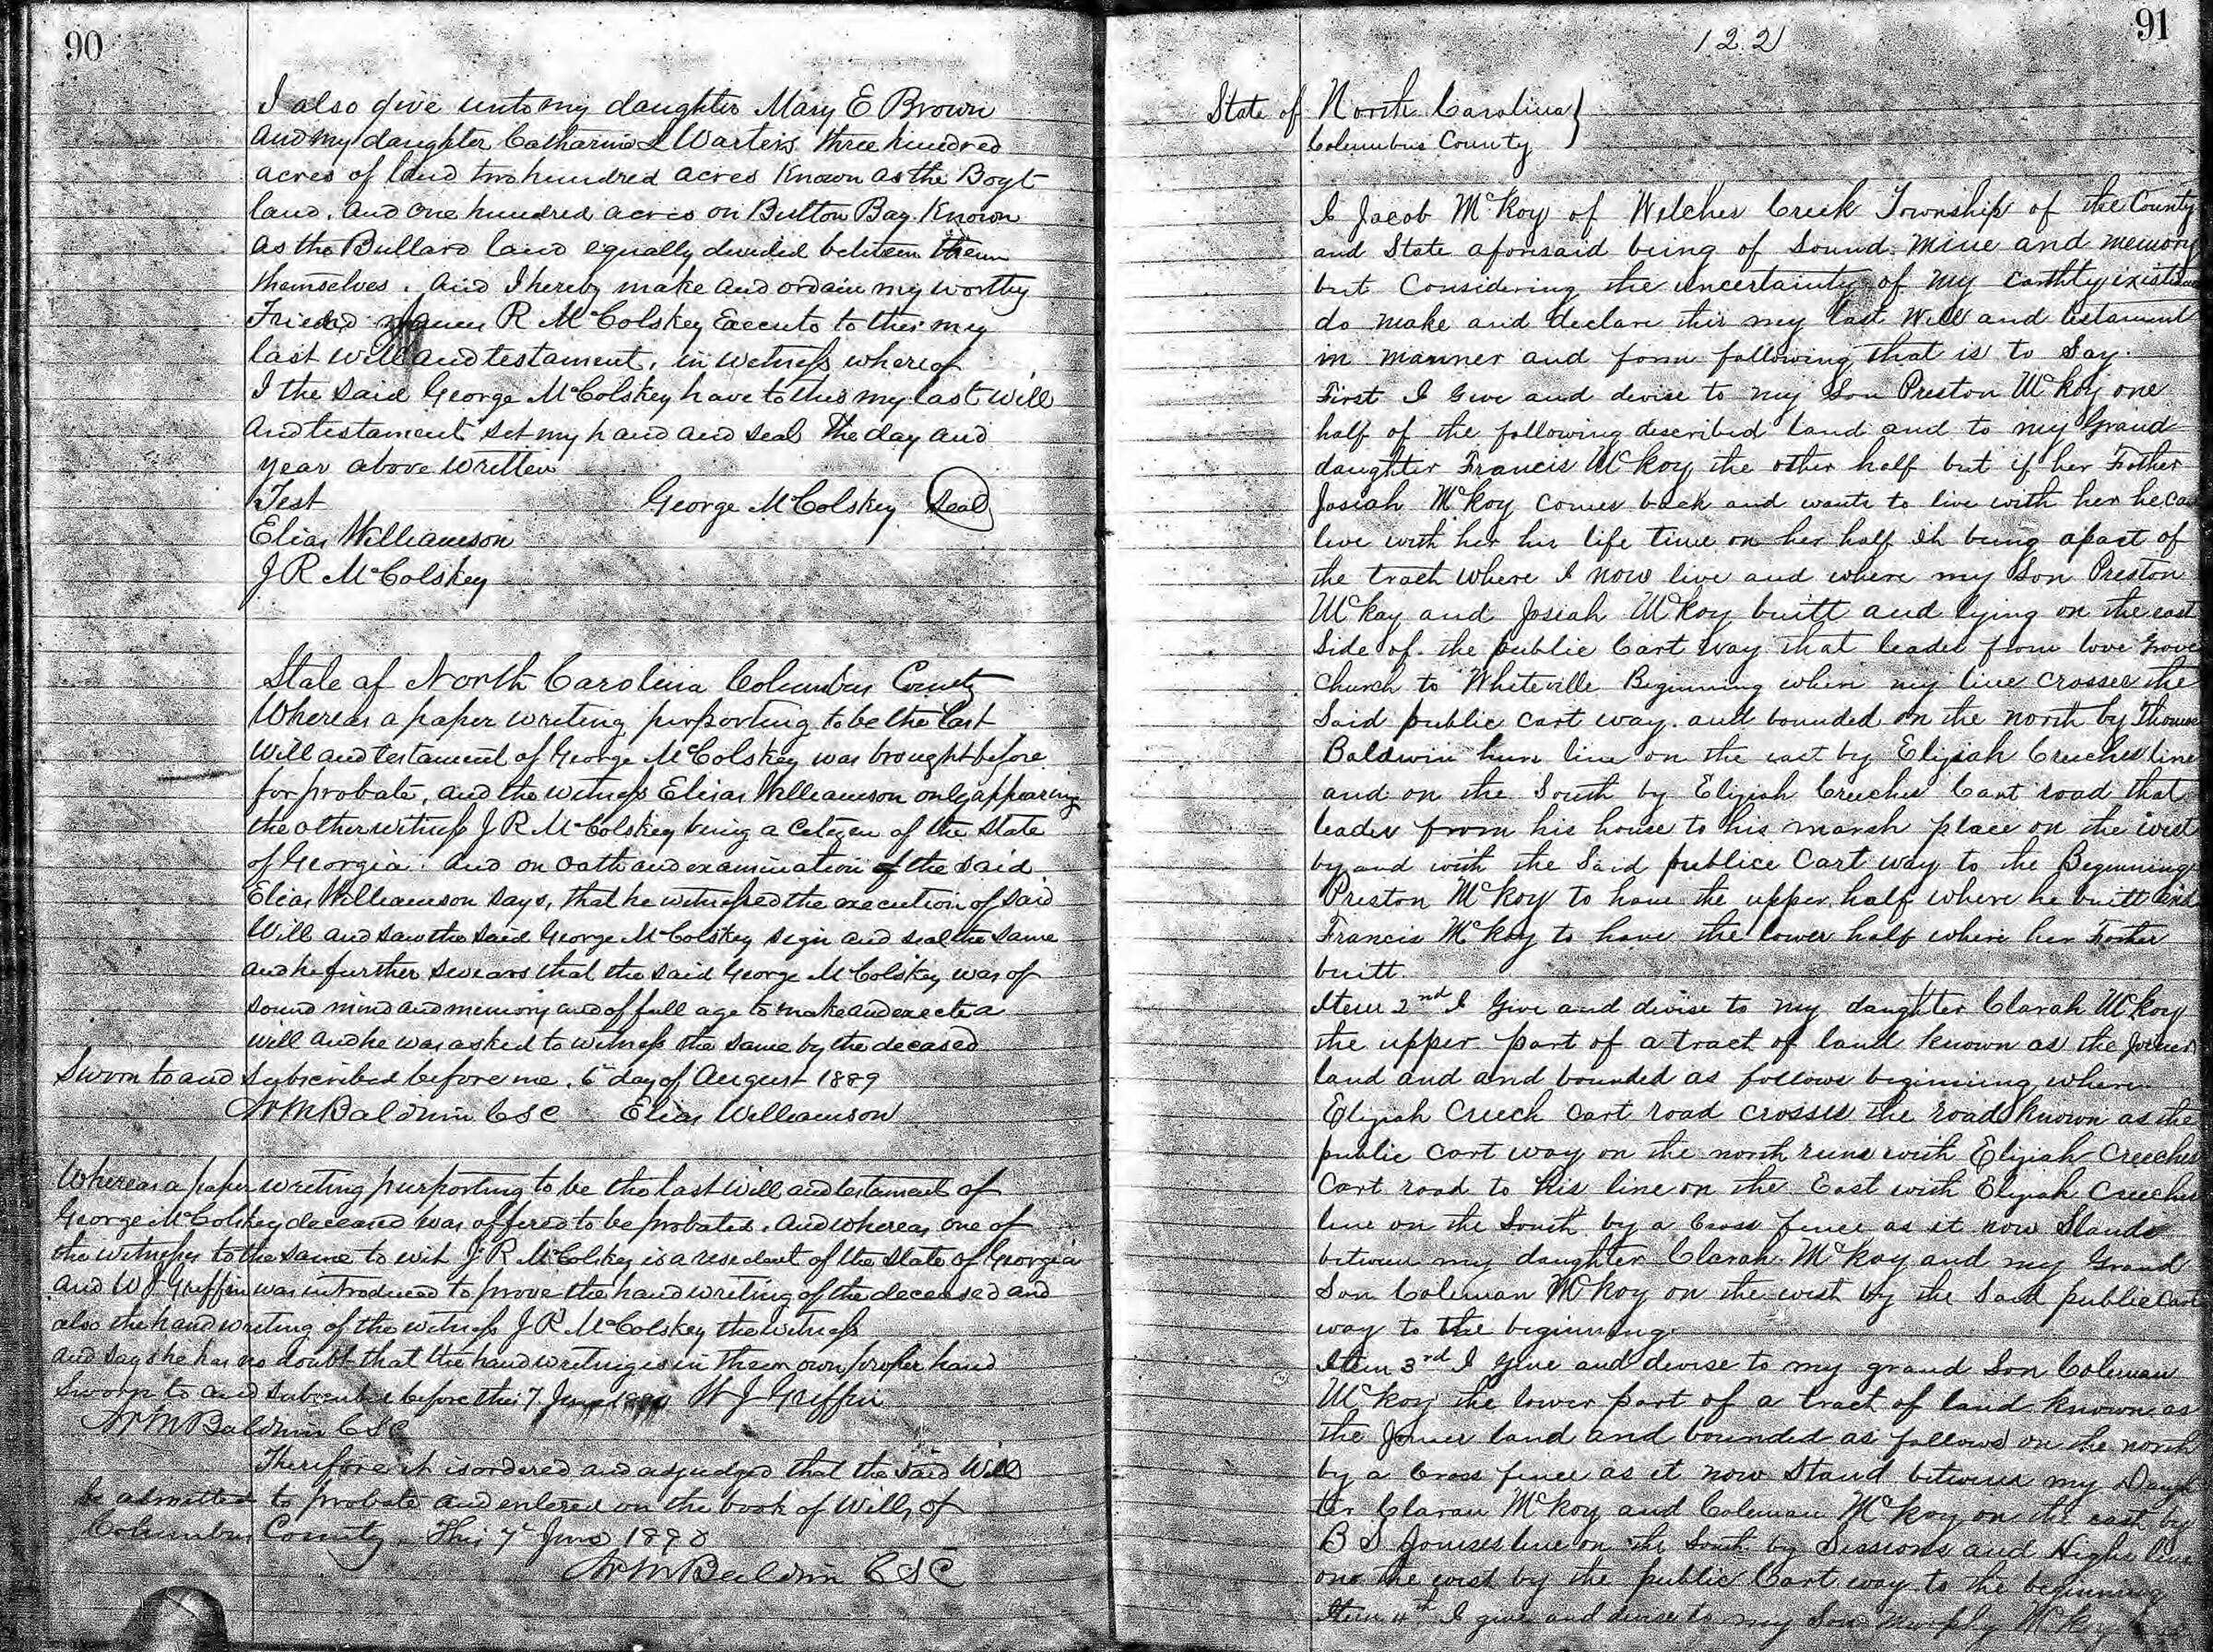 90
I also give unto my daughter Mary E Brown
and my daughter Catharine L Warters three hundred
acres of land two hundred acres Known as the Boyt
land. and One hundred acres on Bulton Bay. Known
as the Bullard land equally devided between them
themselves. and I hereby make and ordain my worthy
Friend James R McColskey Executo to this my
last will and testament, in witness whereof
I the said George McColskey have to this my last Will
and testament set my hand and seal The day and
year above written
Test George McColskey Seal
Elias Williamson
J R McColskey
State of North Carolina Columbus County
Whereas a paper writing purporting to be the last
Will and testament of George McColskey was brought before
for probate, and the witness Elias Williamson only appearing
the other witness J R McColskey being a Citizen of the State
of Georgia. and on oath and examination of the said
Elias Williamson says, that he witnessed the execution of said
Will and saw the said George McColskey sign and seal the same
and he further swears that the said George McColskey was of
sound mind and memory and of full age to make and execute a
will and he was asked to witness the same by the deceased
Sworn to and subscribed before me. 6 day of August 1889
Baldwin CSC Elias Williamson
Whereas a paper writing purporting to be the last Will and testament of
George McColskey deceased was offered to be probated. and whereas one of
the witnesses to the same to wit J R McColskey is a resident of the State of Georgia
and W J Griffin was introduced to prove the hand writing of the deceased and
also the hand writing of the witness J R McColskey the witness
and says he has no doubt that the hand writing is in their own proper hand
Sworn to and subscribed before this 7 June 1890 W J Griffin
Baldwin CSC
Therefore it is ordered and adjudged that the said Will
be admitted to probate and entered on the book of Wills of
Columbus County. This 7 June 1890
Baldwin CSC
91
122
State of North Carolina }
Columbus County
I Jacob McKoy of Welches Creek Township of the County
and State aforesaid being of Sound mine and memory
but Considering the uncertainty of my earthly
do make and declare this my last Will and testament
in manner and form following that is to Say.
First I Give and devise to my Son Preston McKoy one
half of the following described land and to my Grand
daughter Francis McKoy the other half but if her Father
Josiah McKoy comes back and wants to live with her he can
live with her his life time on her half It being apart of
the tract where I now live and where my Son Preston
McKay and Josiah McKoy built and lying on the east
Side of the public Cart Way that leades from love Grove
Church to Whiteville Beginning where my line crosses the
Said public cart way. and bounded on the north by
Baldwin line on the east by Elijiah Creeches line
and on the South by Elijiah Creeches Cart road that
leades from his house to his marsh place on the west
by and with the Said publice Cart way to the Beginning
Preston McKoy to have the upper half where he built and
Francis McKoy to have the lower half where her Father
built.
Item 2nd I Give and devise to my daughter Clarah McKoy
the upper part of a tract of land known as the
land and and bounded as follows beginning where
Elijiah Creech Cart road crosses the road known as the
public cart way on the north runs with Elijiah Creeches
Cart road to his line on the East with Elijiah Creeches
line on the South by a Cross fence as it now Stands
between my daughter Clarah McKay and my Grand
Son Coleman McKoy on the west by the Said public Cart
way to the beginning.
Item 3rd I Give and devise to my grand Son Coleman
McKoy the lower part of a tract of land known as
the land and bounded as follows on the north
by a Cross fence as it now Stand between my Daugh
ter Clarah McKoy and Coleman McKoy on the east by
B S line on the South by Sessions and Highs line
one the west by the public Cart way to the beginning
Item 4th I give and devise to my Son Murphy McKoy